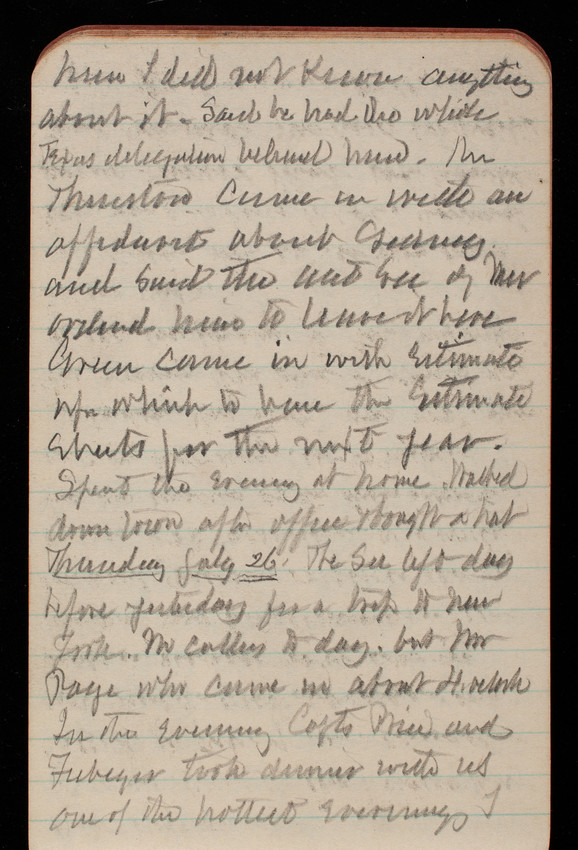 him I did not know anything
about it. Said he had the whole
Texas delegation behind him. Mr
Thurston came in with an
affidavit about
and said the act Sec of
ordered him to leave it here
Green came in with Estimate
upon which to have the Estimate
sheets for the next year.
Spent the Evening at home. Walked
down town after office & bought a hat
Thursday July 26. The Sec left day
before yesterday for a trip to New
York. No callers to day. but Mr
Page who came in about
In the Evening Capts Price and
Febiger took dinner with us
One of the hottest Evenings I